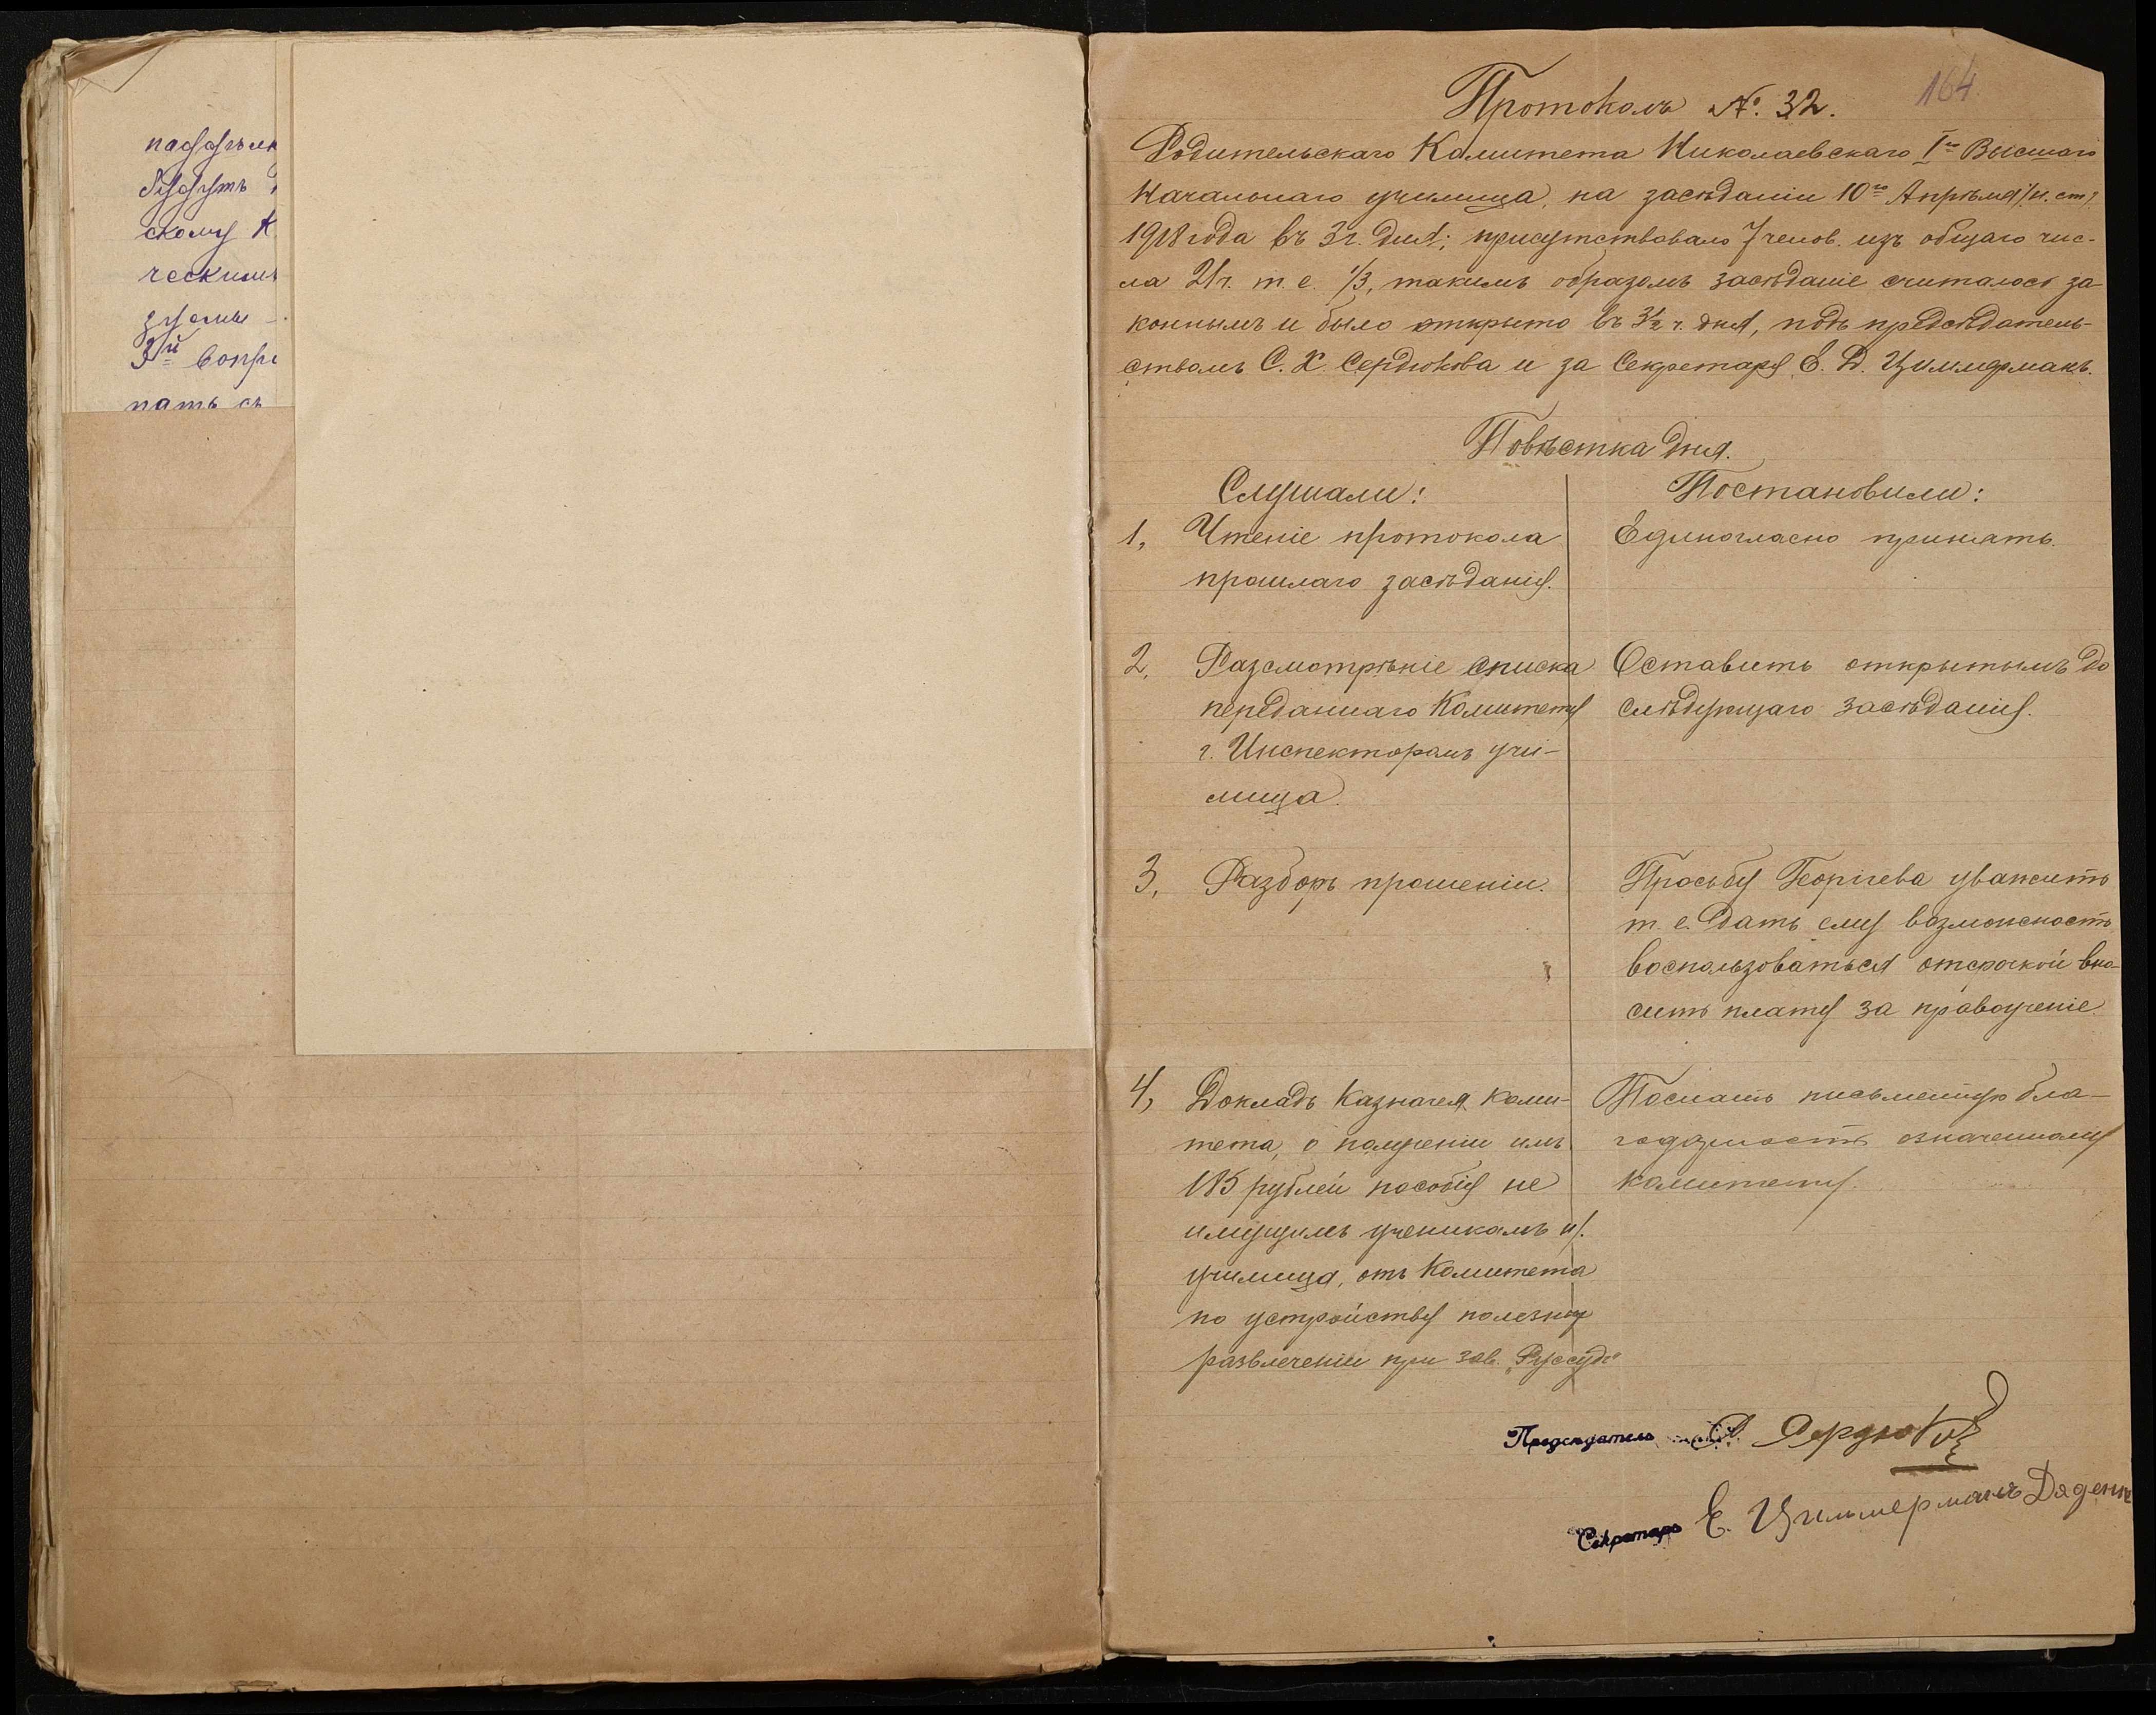 скому К
3й вопр
пать съ
164
Протоколъ №. 32.
Родительскаго Комитета Николаевскаго Iго Высшаго
Начальнаго училища, на засѣданіи 10го Апрѣля /н. ст/
1918 года въ 3 ч. дня; присутствовало 7 челов. изъ общаго чис-
ла 21 ч. т. е. 1/3, такимъ образомъ засѣданіе считалось за-
коннымъ и было открыто въ 3½ ч. дня, подъ предсѣдатель-
ствомъ С. Х. Сердюкова и за Секретаря Е. Д. Циммерманъ.
Повѣстка дня.
Слушали:
Постановили:
1, Чтеніе протокола
прошлаго засѣданія.
Единогласно принять.
2, Разсмотрѣніе списка
переданнаго Комитету
г. Инспекторомъ учи-
лища.
Оставить открытымъ до
слѣдующаго засѣданія.
3, Разборъ прошеніи.
Просьбу Георгіева уважить
т. е. дать ему возможность
воспользоваться отсрочкой вно-
сить плату за правоученіе
4, Докладъ Казначея коми-
тета, о полученіи имъ
185 рублей пособія не
имущимъ ученикамъ н/.
училища, отъ Комитета
по устройству полезн
развлеченіи при зав. „Руссудъ"
Послать письменную бла-
годарность означенному
комитету.
Предсѣдатель С. Сердюковъ
Секретарь Е. Циммерманъ Дяденк